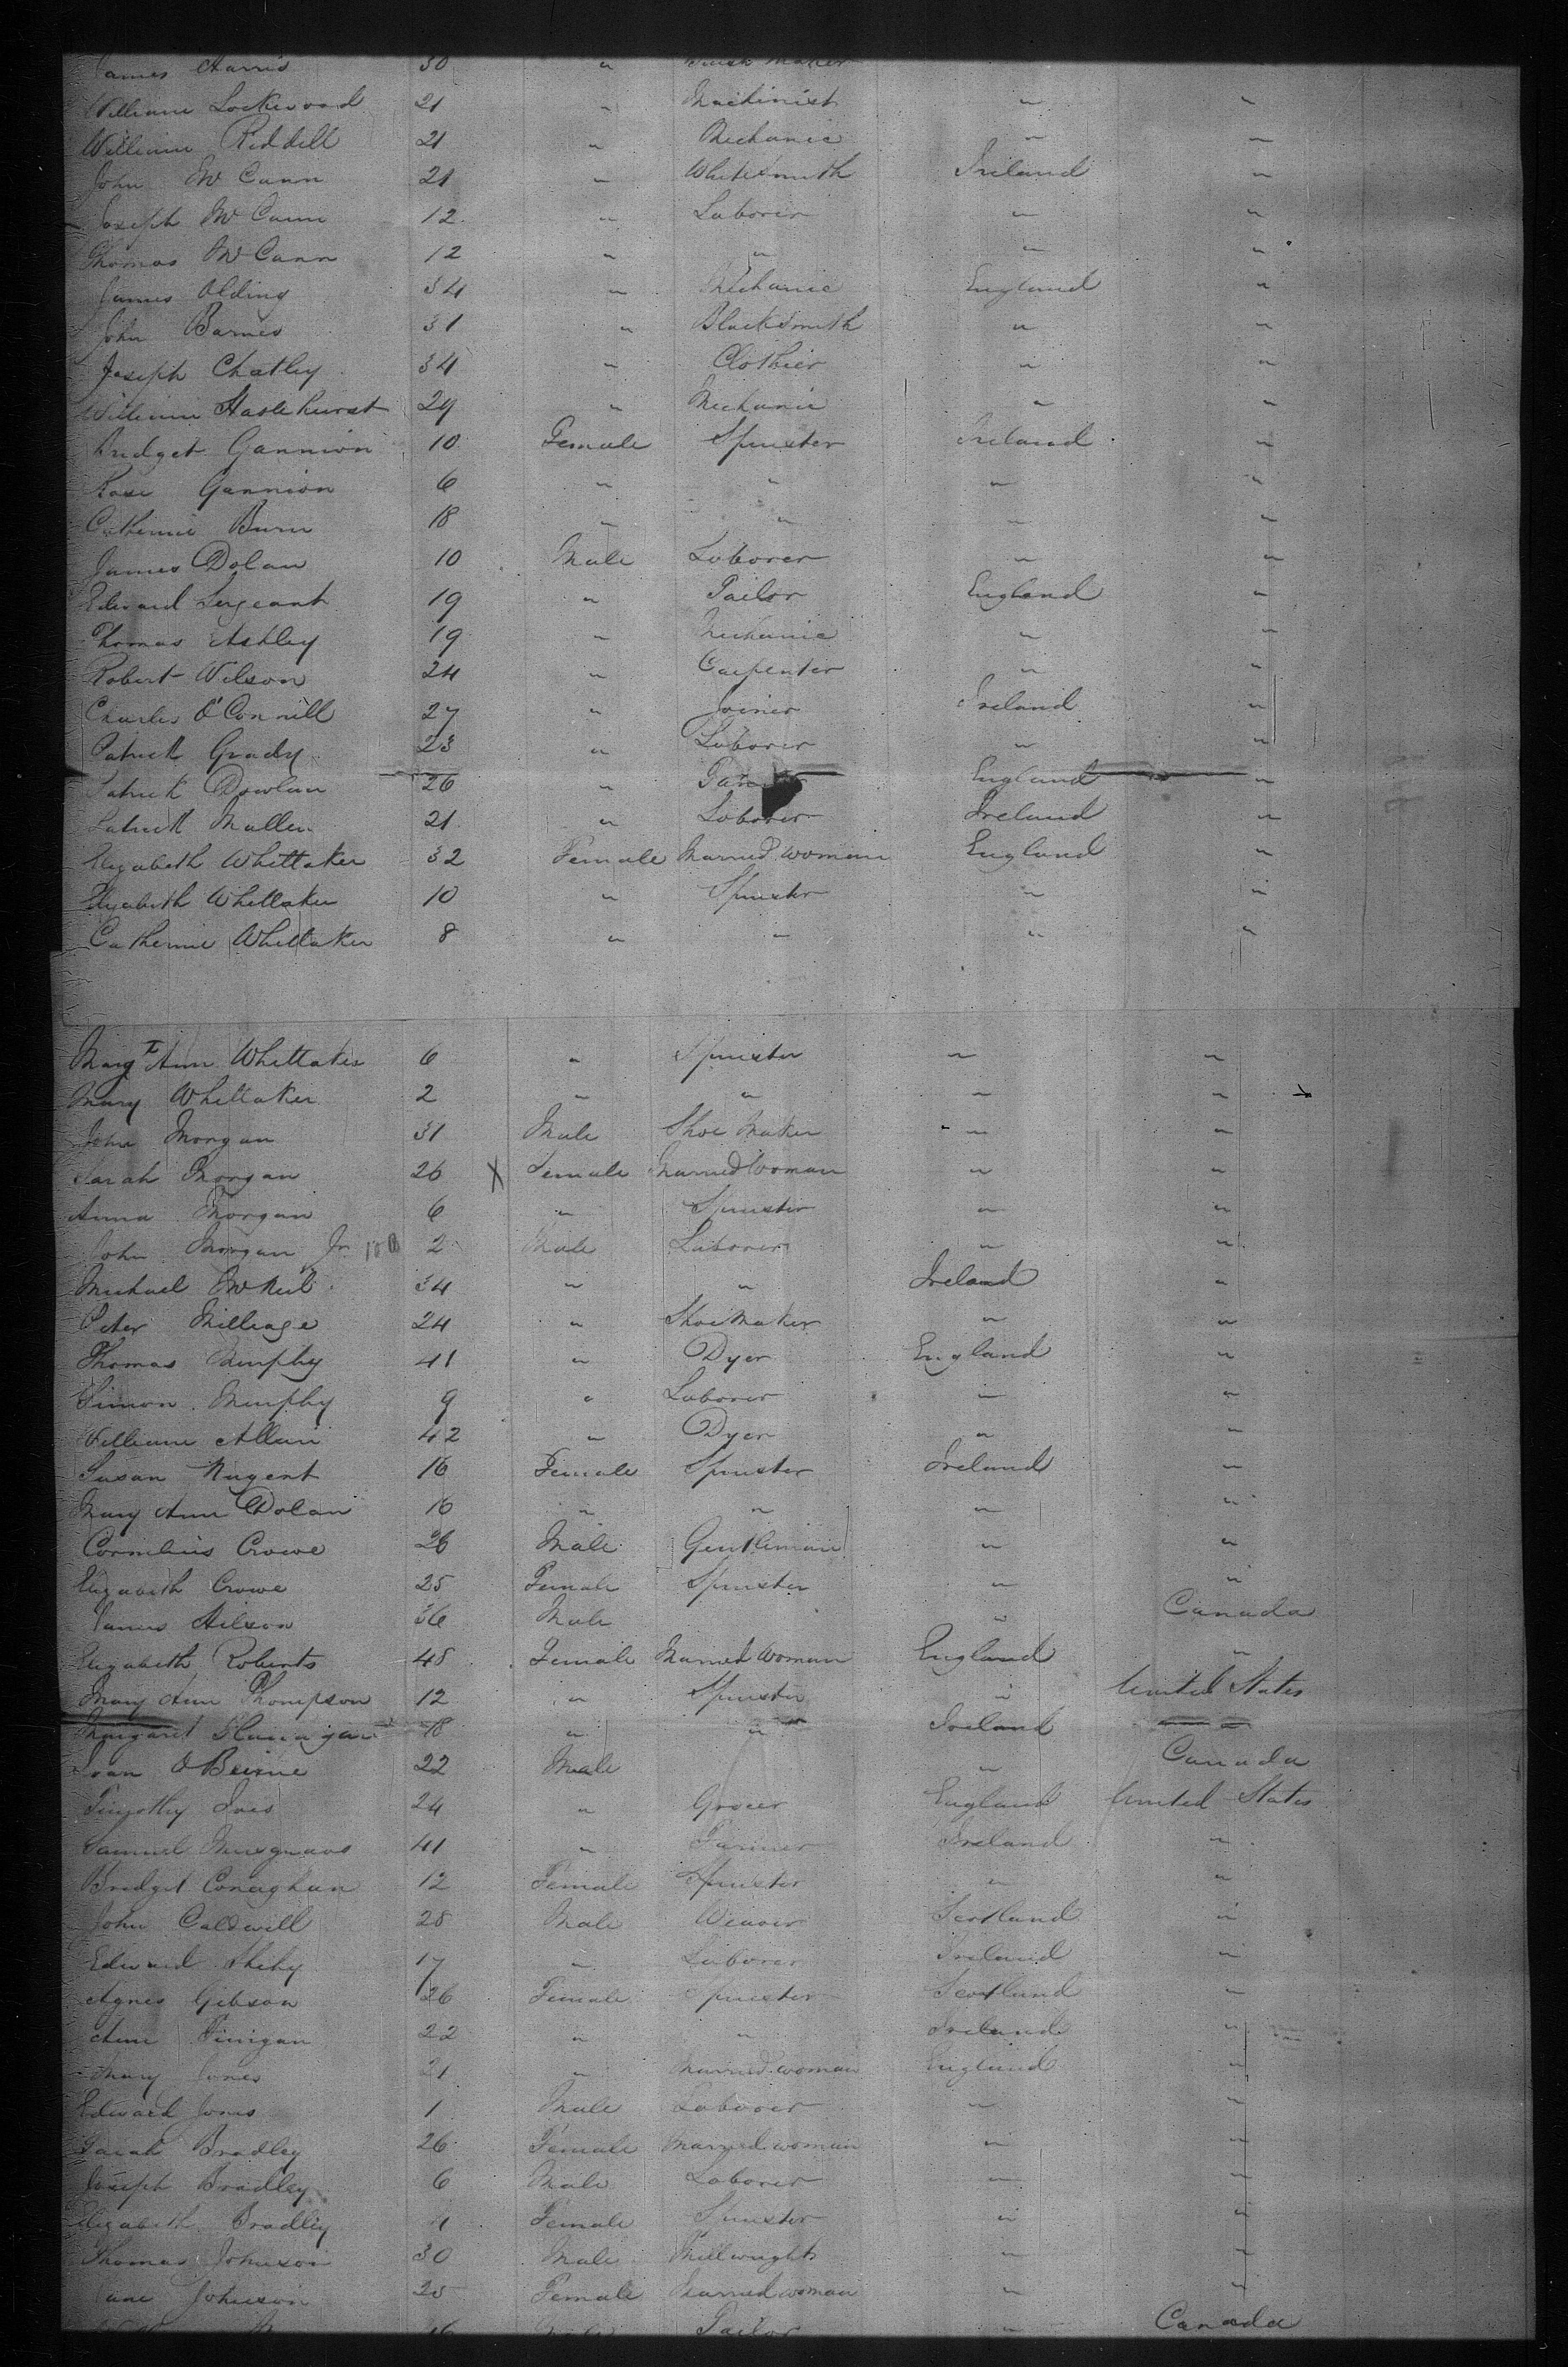 James Harris 30 " Maker
William Lockwood 21 " Machinist " "
William Riddell 21 " Mechanic " "
John McCann 21 " Whitesmith Ireland "
Joseph McCann 12 " Laborer " "
Thomas McCann 12 " " " "
James Olding 34 " Mechanic England "
John Barnes 31 " Blacksmith " "
Joseph Chatley 34 " Clothier " "
William Haslehurst 29 " Mechanic " "
Bridget Gannion 10 Female Spinster Ireland "
Rose Gannion 6 " " " "
Catherine Burn 18 " " " "
James Dolan 10 Male Laborer " "
Edward Sergeant 19 " Tailor England "
Thomas Ashley 19 " Mechanic " "
Robert Wilson 24 " Carpenter " "
Charles O'Connell 27 " Joiner Ireland "
Patrick Grady 23 " Laborer " "
Patrick Dowlan 26 " England "
Patrick Mullen 21 " Laborer Ireland "
Elizabeth Whittaker 32 Female Married woman England "
Elizabeth Whittaker 10 " Spinster " "
Catherine Whittaker 8 " " " "
Ann Whittaker 6 " Spinster " "
Mary Whittaker 2 " " " "
John Morgan 31 Male Shoe Maker " "
Sarah Morgan 26 X Female Married Woman " "
Anna Morgan 6 " Spinster " "
John Morgan Jr 2 Male Laborer " "
Michael McNeil 34 " " Ireland "
Peter Milleage 24 " Shoe Maker " "
Thomas Murphy 41 " Dyer England "
Simon Murphy 9 " Laborer " "
William Allen 42 " Dyer " "
Susan Nugent 16 Female Spinster Ireland "
Mary Ann Dolan 16 " " " "
Cornelius Crowe 26 Male Gentleman " "
Elizabeth Crowe 25 Female Spinster " "
James Hilson 36 Male " Canada
Elizabeth Roberts 48 Female Married Woman England "
Mary Ann Thompson 12 " Spinster " United States
Margaret Flanagan 18 " " Ireland "
O'Beirne 22 Male " Canada
Timothy Ives 24 " Grocer England United States
Samuel Musgrave 41 " Farmer Ireland "
Bridget Conaghan 12 Female Spinster " "
John Caldwell 28 Male Weaver Scotland "
Edward Shehy 17 " Laborer Ireland "
Agnes Gibson 26 Female Spinster Scotland "
Ann Finigan 22 " " Ireland "
Mary Jones 21 " Married woman England "
Edward Jones 1 Male Laborer " "
Sarah Bradley 26 Female Married woman " "
Joseph Bradley 6 Male Laborer " "
Elizabeth Bradley 4 Female Spinster " "
Thomas Johnson 30 Male Millwright " "
Jane Johnson 25 Female Married woman " "
Tailor " Canada